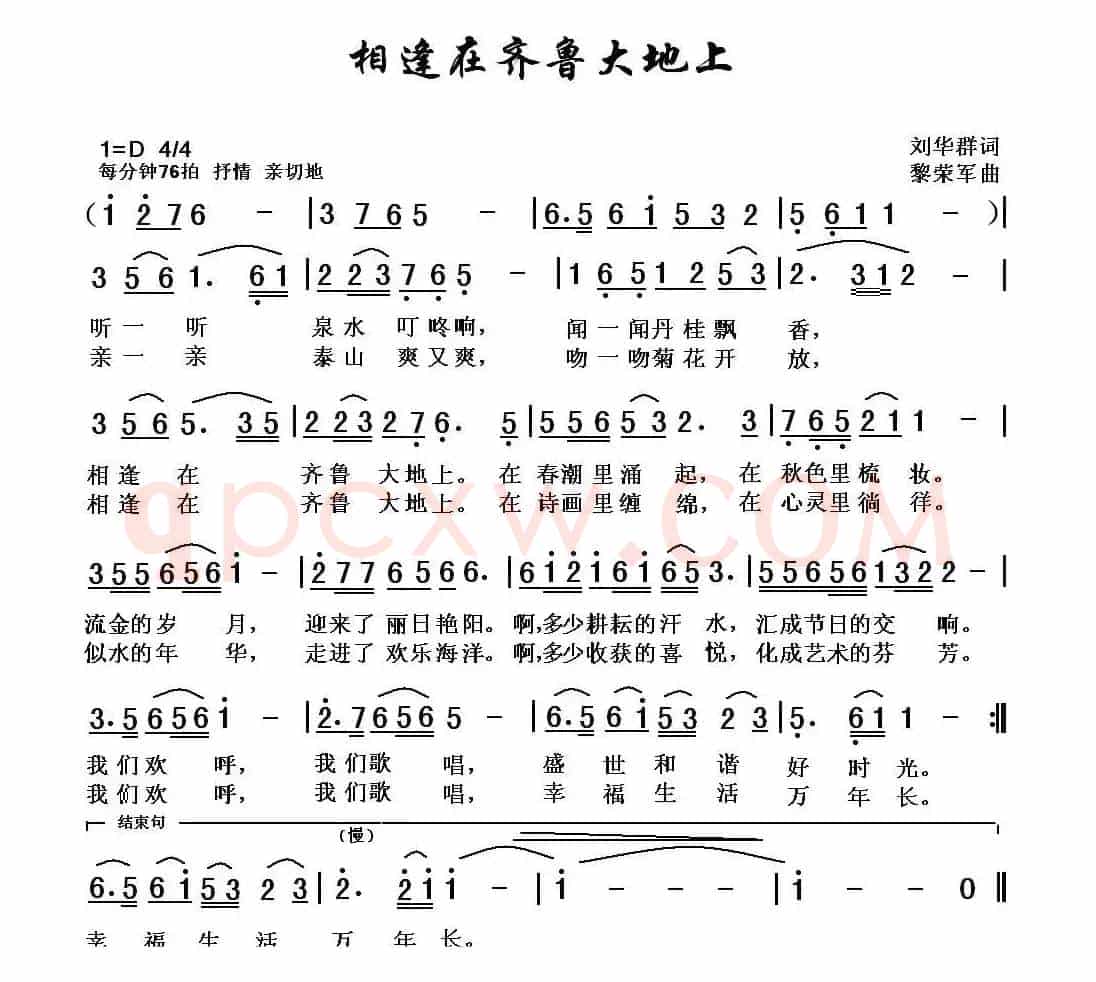 相逢在齐鲁大地上
1=D 4/4
刘华群词
每分钟76拍 抒情 亲切地
黎荣军曲
(i 2 7 6 - | 3 7 6 5 - | 6. 5 6 i 5 3 2 | 5 6 1 1 - )|
3 5 6 1. 6 1 | 2 2 3 7 6 5 - | 1 6 5 1 2 5 3 | 2. 3 1 2 - |
听一 听 泉水 叮咚响, 闻一闻丹桂飘 香,
亲一 亲 泰山 爽又爽, 吻一吻菊花开 放,
3 5 6 5. 3 5 | 2 2 3 2 7 6. 5 | 5 5 6 5 3 2. 3 | 7 6 5 2 1 1 - |
相逢 在 齐鲁 大地上。在春潮里涌 起,在秋色里梳 妆。
相逢 在 齐鲁 大地上。在诗画里缠 绵,在心灵里徜 徉。
qpcxw.COM
3 5 5 6 5 6 i - | 2 7 7 6 5 6 6. | 6 i 2 i 6 i 6 5 3. | 5 5 6 5 6 1 3 2 2 - |
流金的岁 月, 迎来了丽日艳阳。啊,多少耕耘的汗 水,汇成节日的交 响。
似水的年 华, 走进了欢乐海洋。啊,多少收获的喜 悦,化成艺术的芬 芳。
3. 5 6 5 6 i - | 2. 7 6 5 6 5 - | 6. 5 6 i 5 3 2 3 | 5. 6 1 1 - :‖
我们欢 呼, 我们歌 唱, 盛 世 和 谐 好 时 光。
我们欢 呼, 我们歌 唱, 幸 福 生 活 万 年 长。
结束句 (慢)
6. 5 6 i 5 3 2 3 | 2. 2 i i - | i - - - | i - 0 ‖
幸 福 生 活 万 年 长。